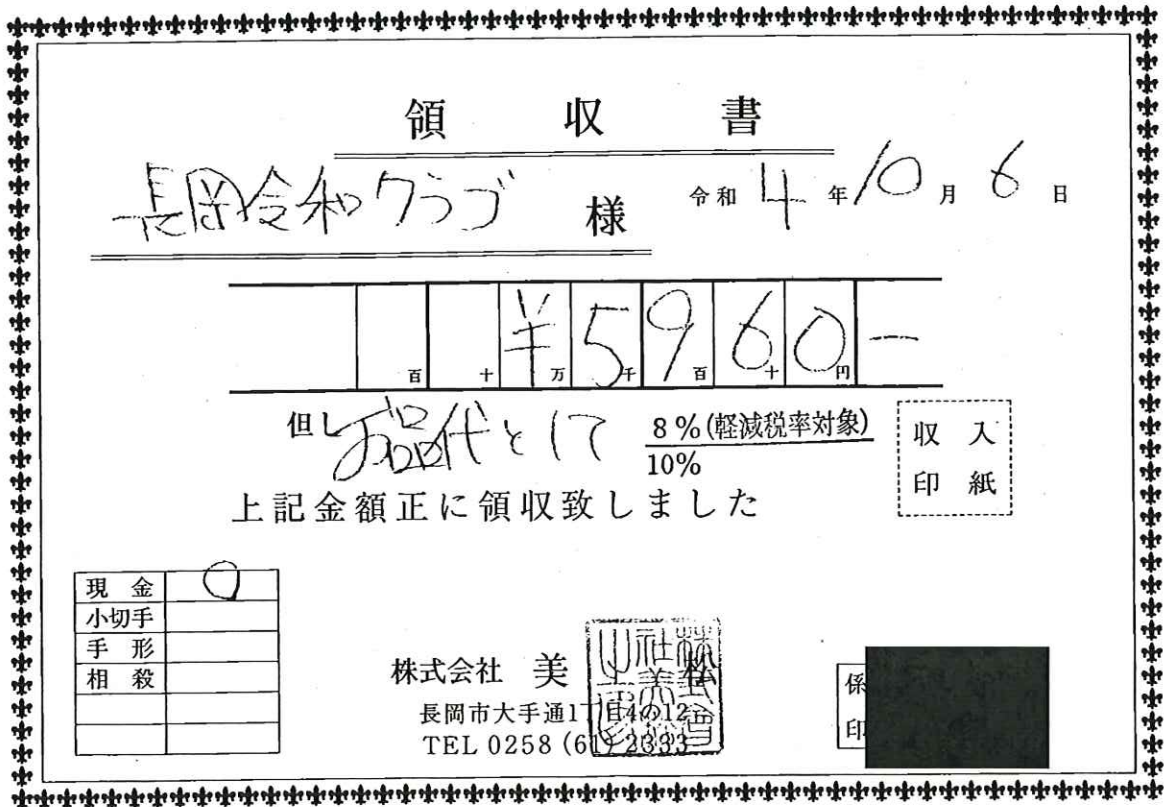 領収書
長岡令和クラブ 様 令和 4 年 10 月 6 日
百 十 ¥万 5千 9百 6十 0円 ー
但し お品代として 8%(軽減税率対象)
10%
収入
印紙
上記金額正に領収致しました
現金 ○
小切手
手形
相殺
株式会社 美松
長岡市大手通1丁目4の12
TEL 0258(61)2333
係
印